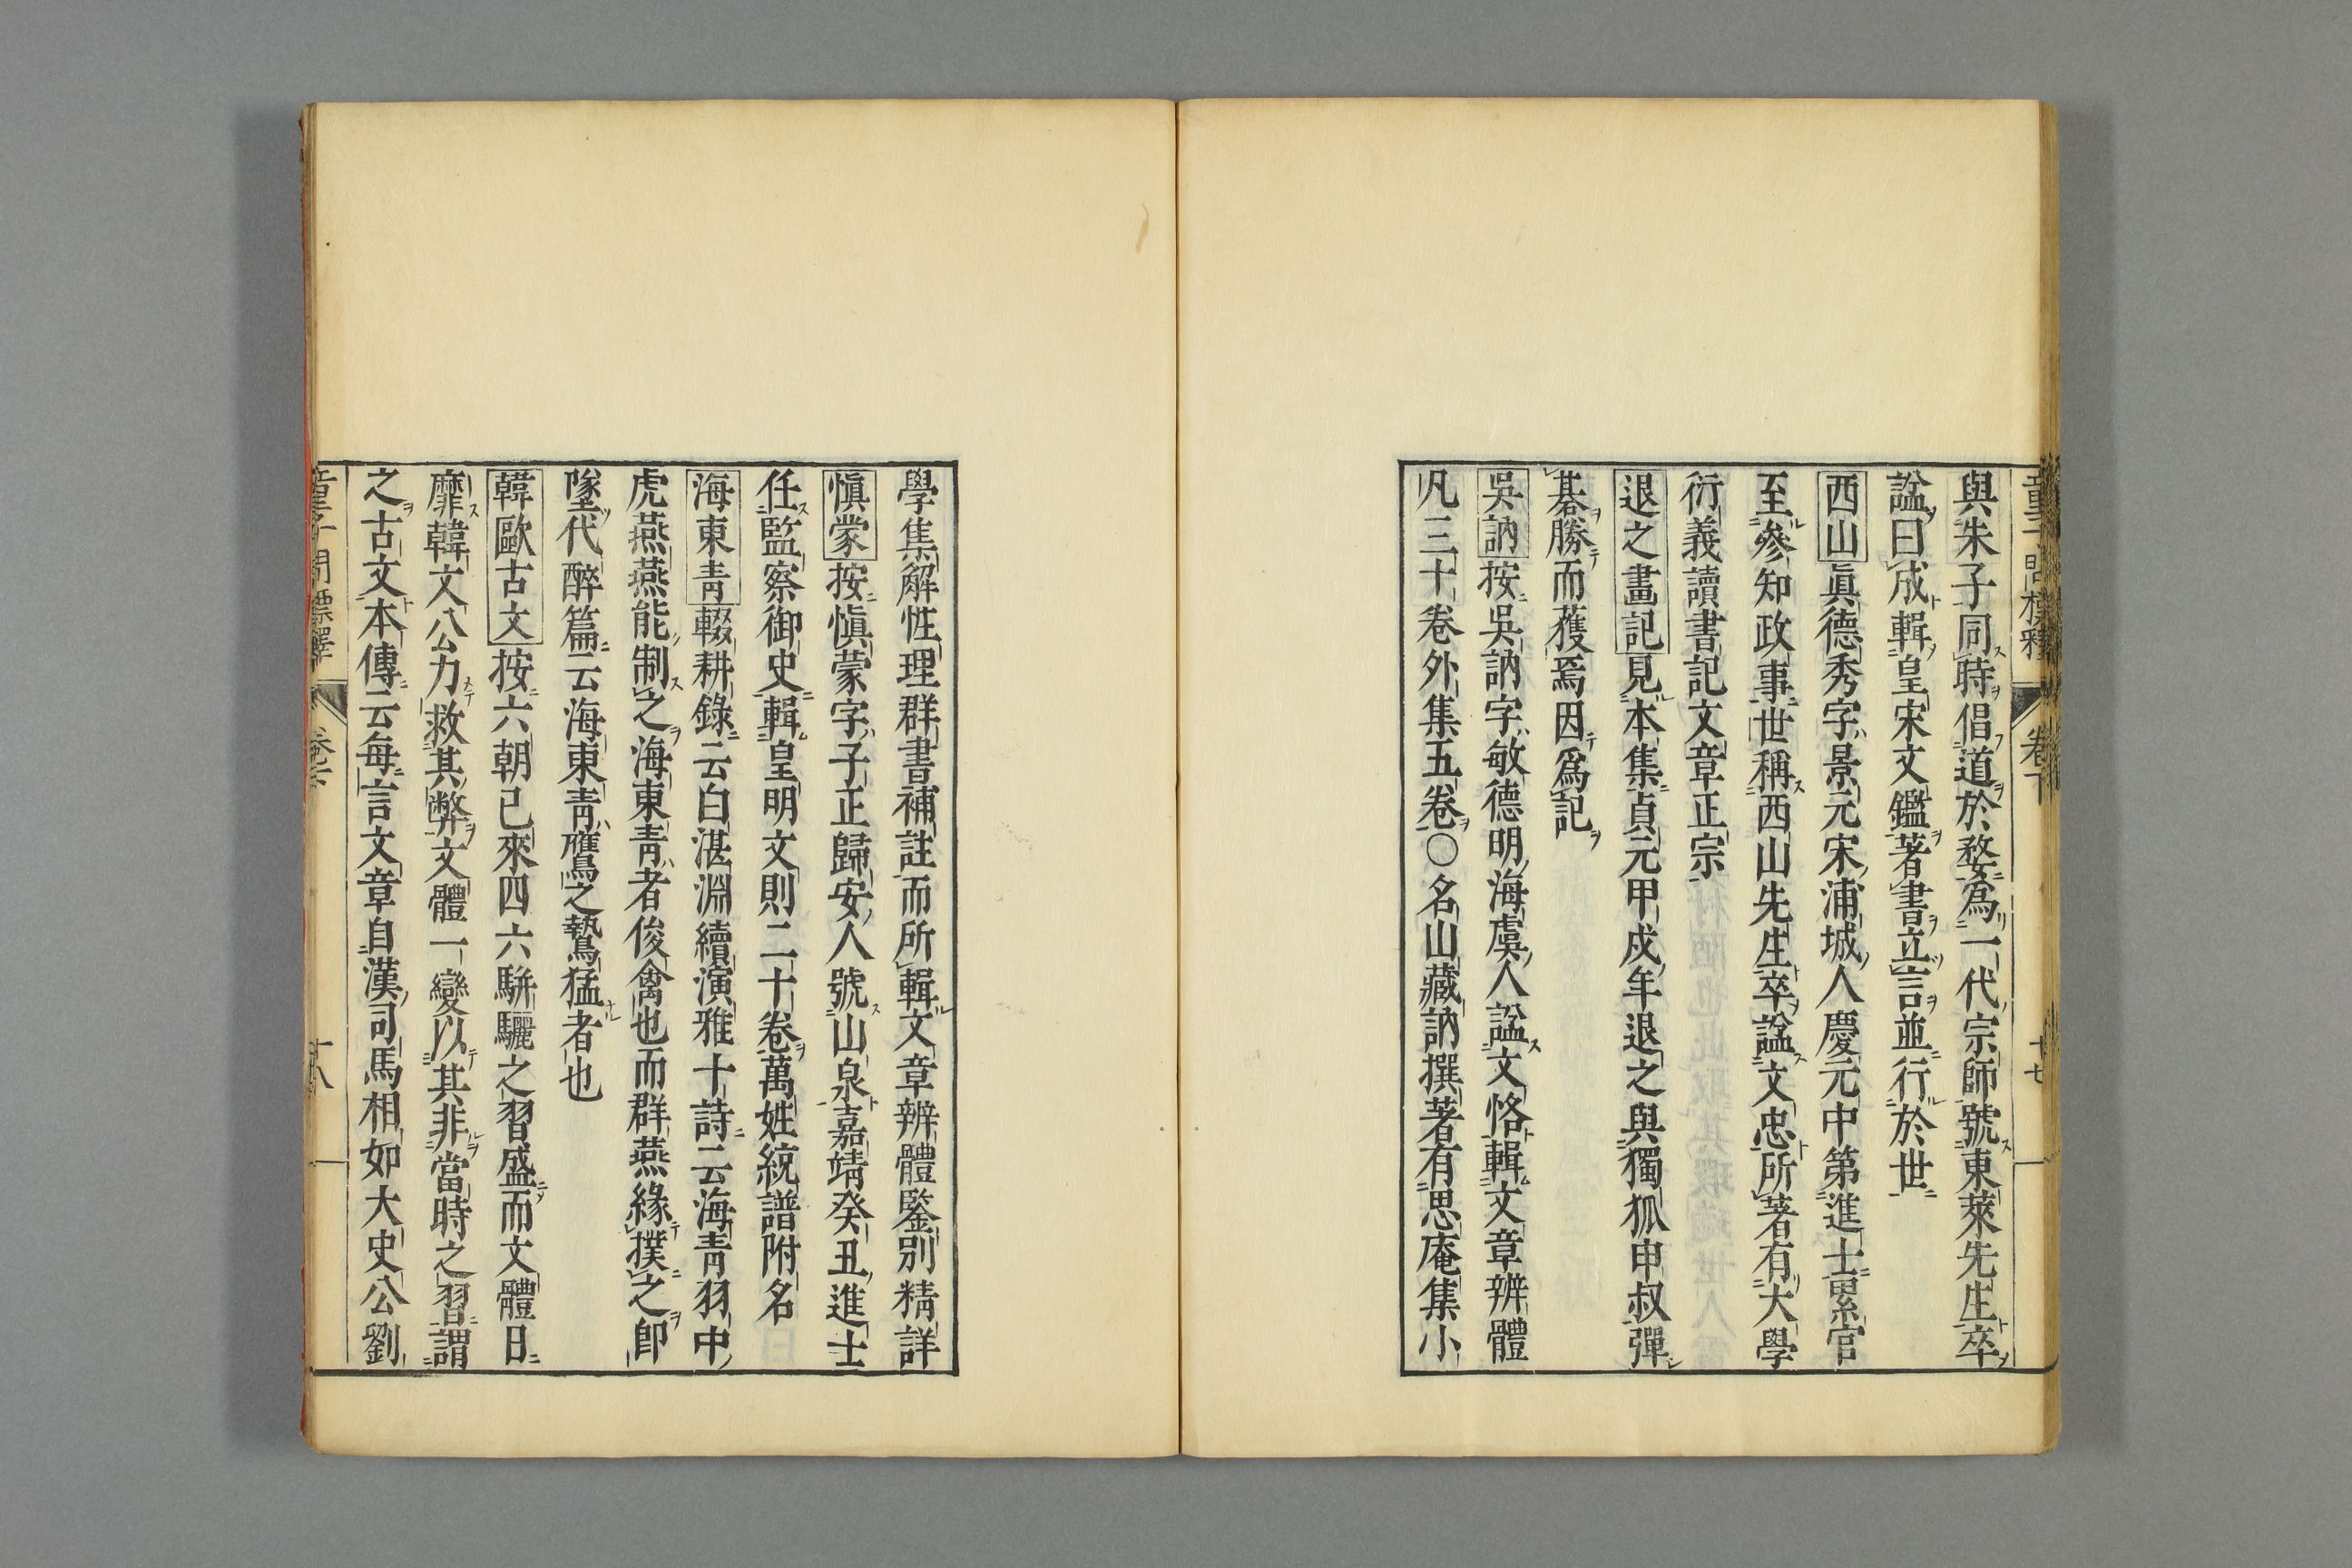 童子問標釋 卷下 十七
與朱子同時倡道於婺爲一代宗師號東萊先生卒
諡曰成輯皇宋文鑑著書立言並行於世
西山眞德秀字景元宋浦城人慶元中第進士累官
至參知政事世稱西山先生卒諡文忠所著有大學
衍義讀書記文章正宗
退之畫記見本集貞元甲戌年退之與獨狐申叔彈
棊勝而獲焉因爲記
吳訥按吳訥字敏德明海虞人諡文恪輯文章辨體
凡三十卷外集五卷〇名山藏訥撰著有思庵集小
學集解性理群書補註而所輯文章辨體鑒別精詳
愼蒙按愼蒙字子正歸安人號山泉嘉靖癸丑進士
任監察御史輯皇明文則二十卷萬姓統譜附名
海東靑輟耕錄云白湛淵續演雅十詩云海靑羽中
虎燕燕能制之海東靑者俊禽也而群燕緣撲之卽
墜代醉篇云海東靑鴈之鷙猛者也
韓歐古文按六朝已來四六駢驪之習盛而文體日
靡韓文公力救其弊文體一變以其非當時之習謂
之古文本傳云每言文章自漢司馬相如大史公劉
童子問標釋 卷下 十八